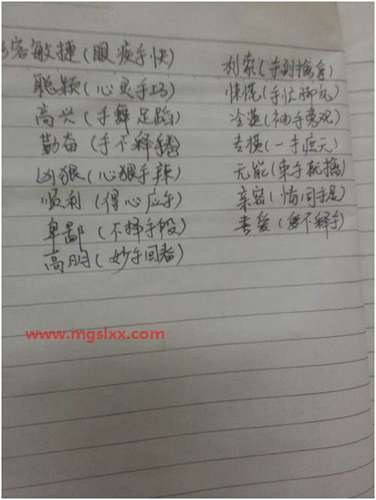 容敏捷(眼疾手快)
聪颖(心灵手巧)
高兴(手舞足蹈)
勤奋(手不释卷)
凶狠(心狠手辣)
顺利(得心应手)
卑鄙(不择手段)
高明(妙手回春)
利索(手到擒来)
(手忙脚乱)
冷淡(袖手旁观)
专横(一手遮天)
无能(束手就擒)
亲密(情同手足)
喜爱(爱不释手)
www.mgslxx.com